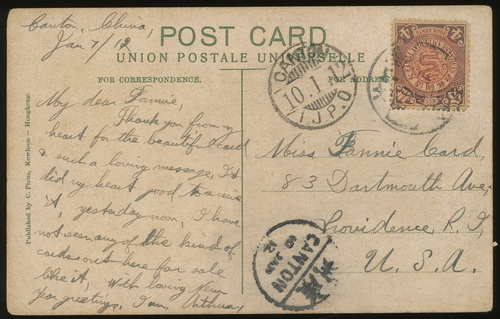 Canton, China,
Jan 7/12
POST CARD
UNION POSTALE UNIVERSELLE
FOR CORRESPONDENCE.
FOR ADDRESS
My dear Fannie,
Thank you from my
heart for the beautiful card
& such a loving message, It
did my heart good to receive
it, yesterday noon, I have
not seen any of the kind of
cards out here for sale
like it, With loving New
Year greetings, I am Arthur,
Published by C. Piens, Kowloon - Hongkong.
CANTON
10.1.12
I.J.P.O
Miss Fannie Card,
83 Dartmouth Ave,
Providence, R. I,
U. S. A.
CANTON
10 JAN
12